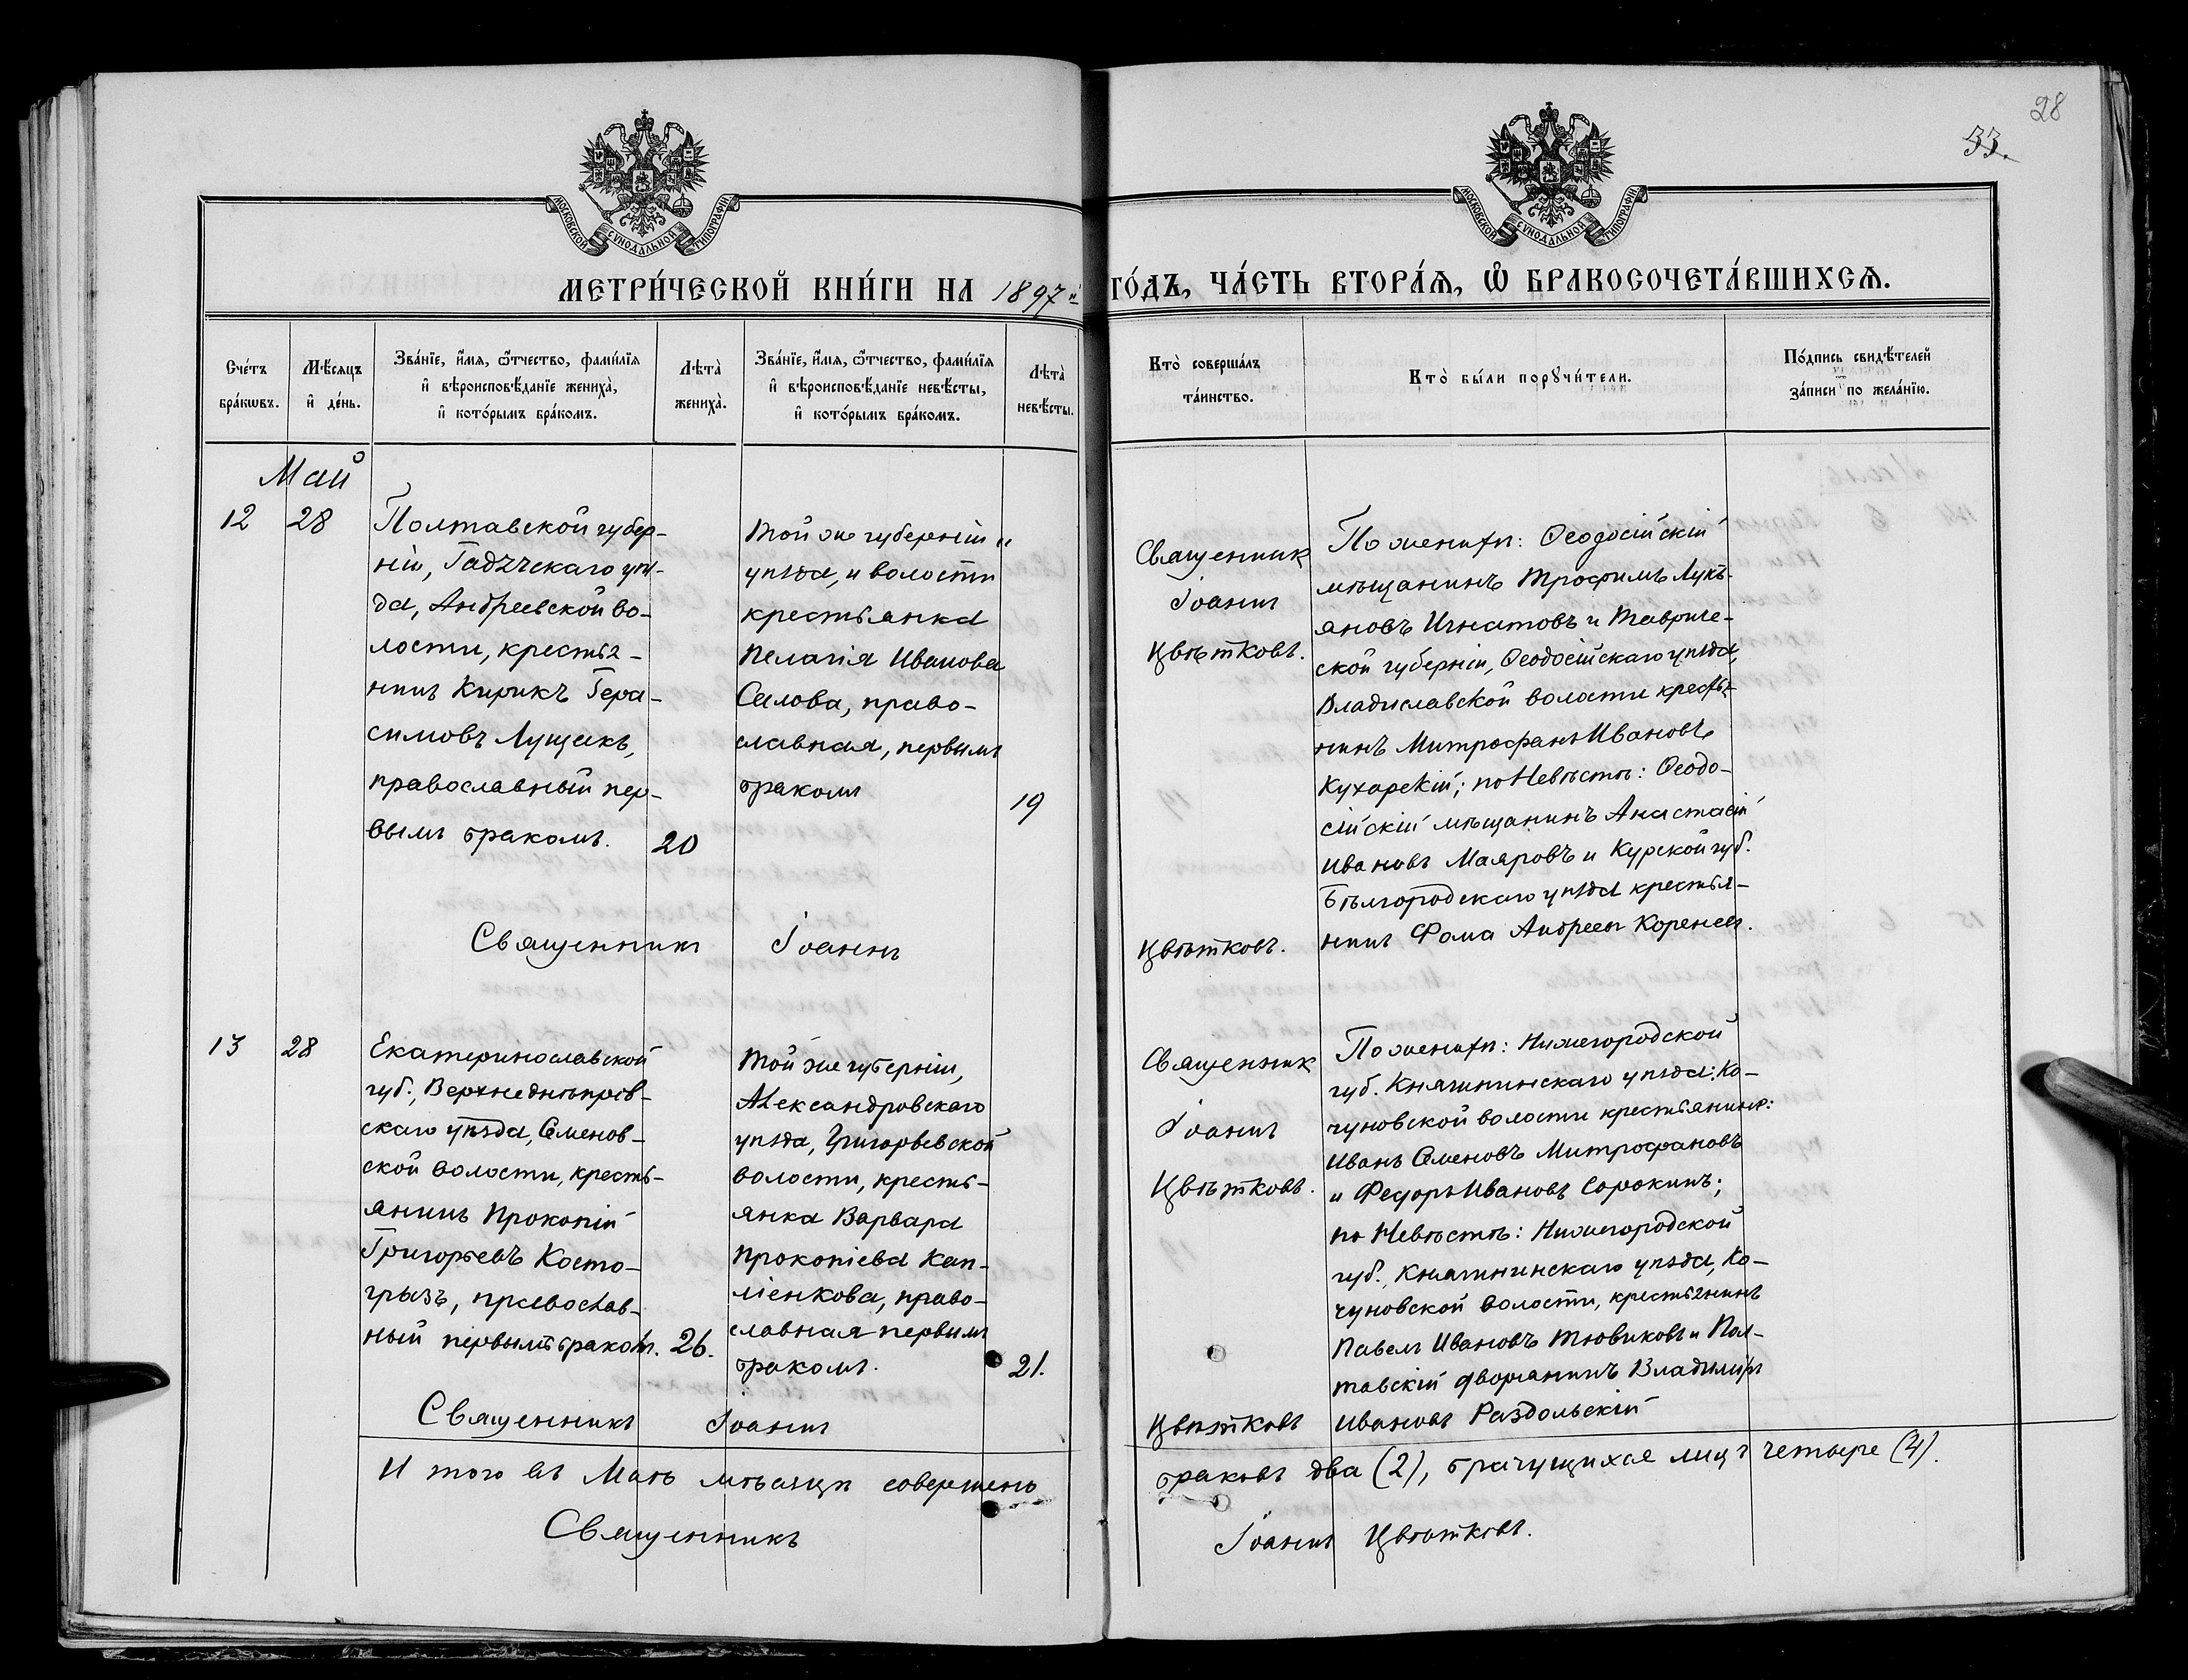 28
33.
МОСКОВСКОЙ СѴНОДАЛЬНОЙ ТИПОГРАФІИ
МОСКОВСКОЙ СѴНОДАЛЬНОЙ ТИПОГРАФІИ
МЕТРИ́ЧЕСКОЙ КНИ́ГИ НА 1897й ГО́ДЪ, ЧА́СТЬ ВТОРА́Ѧ, Ѽ БРАКОСОЧЕТА́ВШИХСѦ.
Сче́тъ
бра́кѡвъ.
Мѣ́сяцъ
и҆ де́нь.
Зва́нїе, и҆́мя, ѻ҆́тчество, фами́лїя
и҆ вѣроисповѣ́данїе жениха̀,
и҆ кото́рымъ бра́комъ.
Лѣта̀
жениха̀.
Зва́нїе, и҆́мя, ѻ҆́тчество, фами́лїя
и҆ вѣроисповѣ́данїе невѣ́сты,
и҆ кото́рымъ бра́комъ.
Лѣта̀
невѣ́сты.
Кто̀ соверша́лъ
та́инство.
Кто̀ бы́ли порꙋчи́тели.
По́дпись свидѣ́телей
за́писи по жела́нїю.
Май
12 28
Полтавской губер-
ніи, Гадячскаго уѣз-
да, Андреевской во-
лости, крестья-
нинъ Кирикъ Гера-
симовъ Лущекъ,
православный пер-
вымъ бракомъ. 20
той же губерніи и
уѣзда, и волости
крестьянка
Пелагія Иванова
Салова, право-
славная, первымъ
бракомъ
19
Священник
Іоаннъ
Цвѣтковъ.
По женихѣ: Ѳеодосійскій
мѣщанинъ Трофимъ Лукь-
яновъ Игнатовъ и Тавриче-
ской губерніи, Ѳеодосійскаго уѣзда,
Владиславской волости крестья-
нинъ Митрофанъ Ивановъ
Кухарскій; по Невѣстѣ: Ѳеодо-
сійскій мѣщанинъ Анастасій
Ивановъ Маяровъ и Курской губ.
Бѣлгородскаго уѣзда крестья-
нинъ Фома Андреевъ Кореневъ.
Священникъ Іоаннъ Цвѣтковъ.
13 28
Екатеринославской
губ., Верхнеднѣпров-
скаго уѣзда, Семенов-
ской волости, кресть-
янинъ Прокопій
Григорьевъ Косто-
грызъ, православ-
ный первымъ бракомъ. 26.
той же губерніи,
Александровскаго
уѣзда, Григорьевской
волости, кресть-
янка Варвара
Прокопіева Кап-
ліенкова, право-
славная первымъ
бракомъ.
21.
Священник
Іоаннъ
Цвѣтковъ.
По женихѣ: Нижегородской
губ. Княгининскаго уѣзда, Ко-
чуновской волости крестьянинъ:
Иванъ Семеновъ Митрофановъ
и Федоръ Ивановъ Сорокинъ;
по Невѣстѣ: Нижегородской
губ., Княгининскаго уѣзда, Ко-
чуновской волости, крестьянинъ
Павелъ Ивановъ Тювиковъ и Пол-
тавскій дворянинъ Владиміръ
Ивановъ Раздольскій
Священникъ Іоаннъ Цвѣтковъ
И того въ Маѣ мѣсяцѣ совершено браковъ два (2), брачущихся лицъ четыре (4).
Священникъ Іоаннъ Цвѣтковъ.